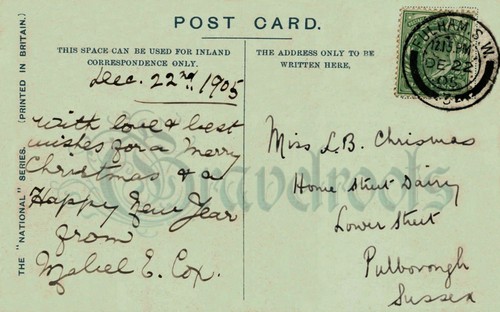 POST CARD.
THIS SPACE CAN BE USED FOR INLAND
CORRESPONDENCE ONLY.
THE ADDRESS ONLY TO BE
WRITTEN HERE.
THE "NATIONAL" SERIES. (PRINTED IN BRITAIN.)
FULHAM S.W.
12.15 PM
DE 22
05
Dec. 22nd 1905
With love & best
wishes for a Merry
Christmas & a
Happy New Year
from
Mabel E. Cox.
Miss L.B. Chrismas
Home Street Dairy
Lower Street
Pulborough
Sussex
Gravelroots